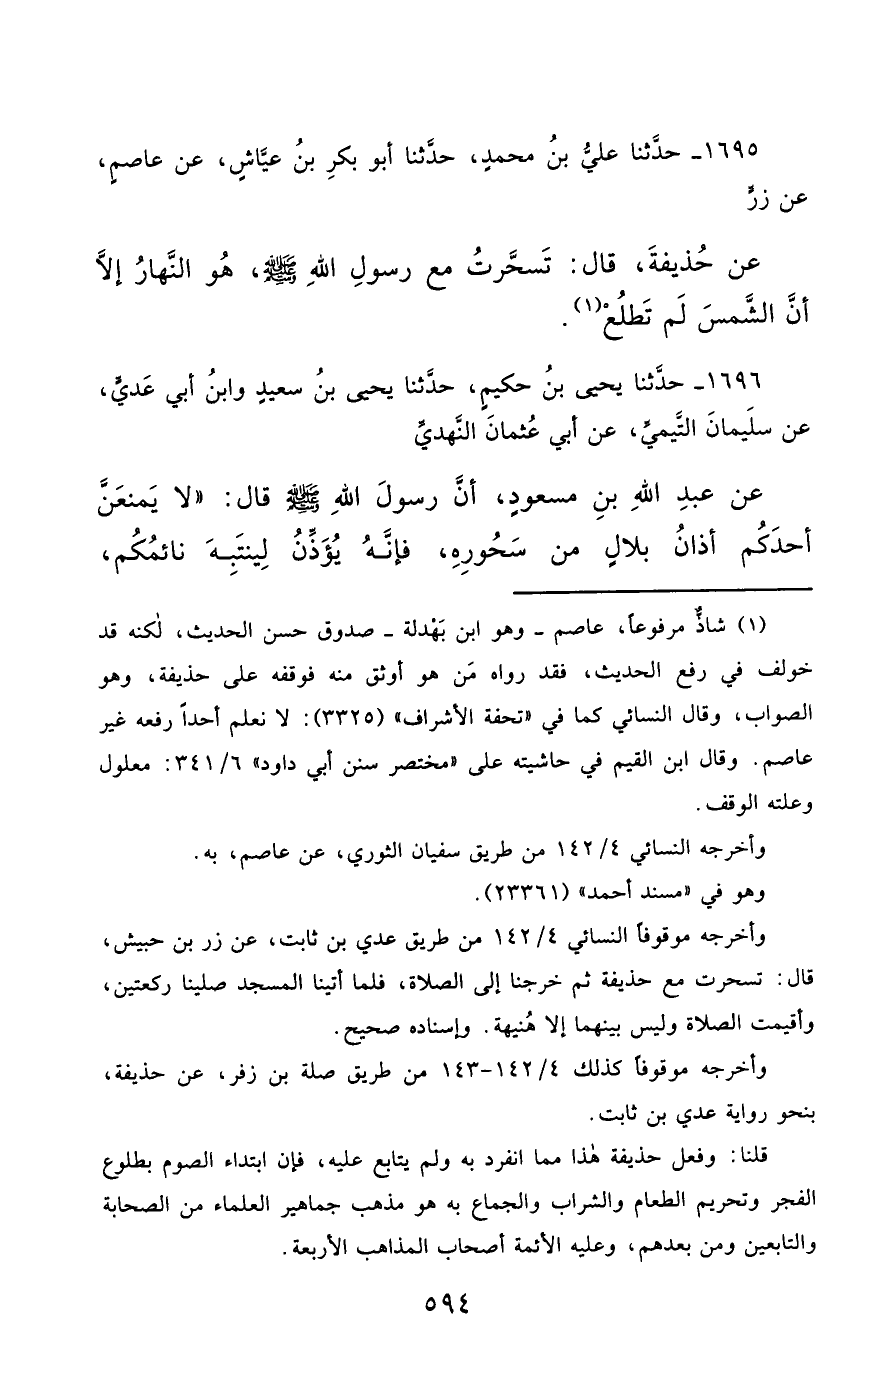 ١٦٩٥ـ حدَّثنا عليُّ بنُ محمدٍ، حدَّثنا أبو بكرِ بنُ عيَّاشٍ، عن عاصمٍ،
عن زرٍّ
عن حُذيفةَ، قال: تَسحَّرتُ مع رسولِ اللهِ ﷺ، هُو النَّهارُ إلاَّ
أنَّ الشَّمسَ لَم تَطلُعْ(١).
١٦٩٦ـ حدَّثنا يحيى بنُ حكيمٍ، حدَّثنا يحيى بنُ سعيدٍ وابنُ أبي عَديٍّ،
عن سلَيمانَ التَّيميِّ، عن أبي عُثمانَ النَّهديِّ
عن عبدِ اللهِ بنِ مسعودٍ، أنَّ رسولَ اللهِ ﷺ قال: «لا يَمنعَنَّ
أحدَكُم أذانُ بلالٍ من سَحُورِهِ، فإنَّـهُ يُؤَذِّنُ لِينتَبِـهَ نائمُكُم،
(١) شاذٌّ مرفوعاً، عاصم ـ وهو ابن بَهْدلة ـ صدوق حسن الحديث، لٰكنه قد
خولف في رفع الحديث، فقد رواه مَن هو أوثق منه فوقفه على حذيفة، وهو
الصواب، وقال النسائي كما في «تحفة الأشراف» (٣٣٢٥): لا نعلم أحداً رفعه غير
عاصم. وقال ابن القيم في حاشيته على «مختصر سنن أبي داود» ٣٤١/٦: معلول
وعلته الوقف.
وأخرجه النسائي ١٤٢/٤ من طريق سفيان الثوري، عن عاصم، به.
وهو في «مسند أحمد» (٢٣٣٦١).
وأخرجه موقوفاً النسائي ١٤٢/٤ من طريق عدي بن ثابت، عن زر بن حبيش،
قال: تسحرت مع حذيفة ثم خرجنا إلى الصلاة، فلما أتينا المسجد صلينا ركعتين،
وأقيمت الصلاة وليس بينهما إلا هُنيهة. وإسناده صحيح.
وأخرجه موقوفاً كذلك ١٤٢/٤-١٤٣ من طريق صلة بن زفر، عن حذيفة،
بنحو رواية عدي بن ثابت.
قلنا: وفعل حذيفة هٰذا مما انفرد به ولم يتابع عليه، فإن ابتداء الصوم بطلوع
الفجر وتحريم الطعام والشراب والجماع به هو مذهب جماهير العلماء من الصحابة
والتابعين ومن بعدهم، وعليه الأئمة أصحاب المذاهب الأربعة.
٥٩٤